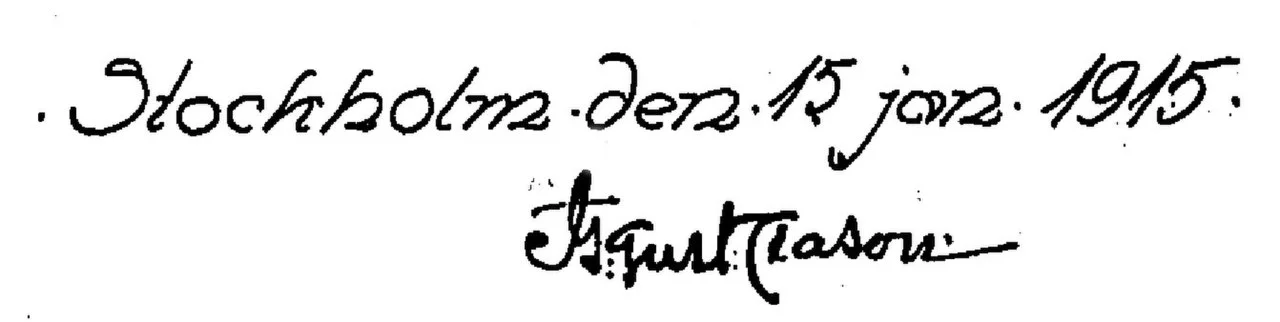 . Stockholm . den . 15 jan . 1915 .
Is: Gust: Clason.